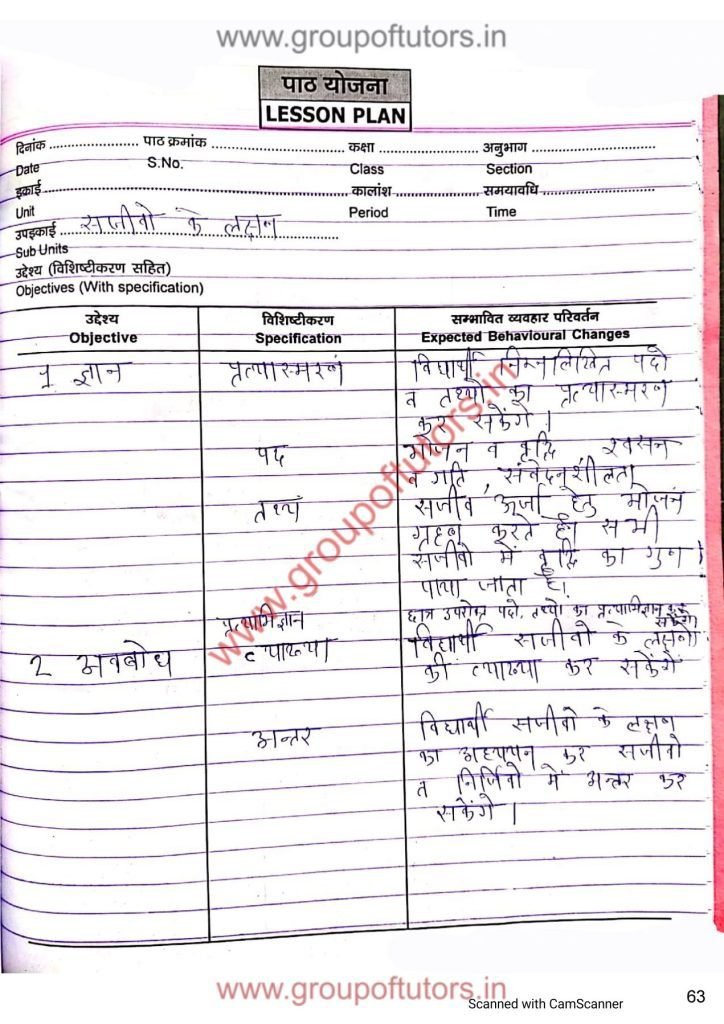 www.groupoftutors.in
पाठ योजना
LESSON PLAN
दिनांक ..................... पाठ क्रमांक ................................ कक्षा ........................ अनुभाग ........................
Date S.No. Class Section
इकाई ................................................................ कालांश ........................ समयावधि ........................
Unit Period Time
उपइकाई .... सजीवो के लक्षण ................
Sub Units
उद्देश्य (विशिष्टीकरण सहित)
Objectives (With specification)
उद्देश्य विशिष्टीकरण सम्भावित व्यवहार परिवर्तन
Objective Specification Expected Behavioural Changes
1. ज्ञान प्रत्यास्मरण विद्यार्थी निम्नलिखित पदो
व तथ्यो का प्रत्यास्मरण
कर सकेंगे ।
पद भोजन व वृद्धि, श्वसन
व गति, संवेदनशीलता
तथ्य सजीव ऊर्जा हेतु भोजन
ग्रहण करते है। सभी
सजीवो में वृद्धि का गुण
पाया जाता है।
प्रत्याभिज्ञान छात्र उपरोक्त पदो, तथ्यो का प्रत्याभिज्ञान कर
सकेंगे।
2 अवबोध व्याख्या विद्यार्थी सजीवो के लक्षणो
की व्याख्या कर सकेंगे
अन्तर विद्यार्थी सजीवो के लक्षण
का अध्ययन कर सजीवो
व निर्जिवो में अन्तर कर
सकेंगे ।
www.groupoftutors.in
www.groupoftutors.in
Scanned with CamScanner
63